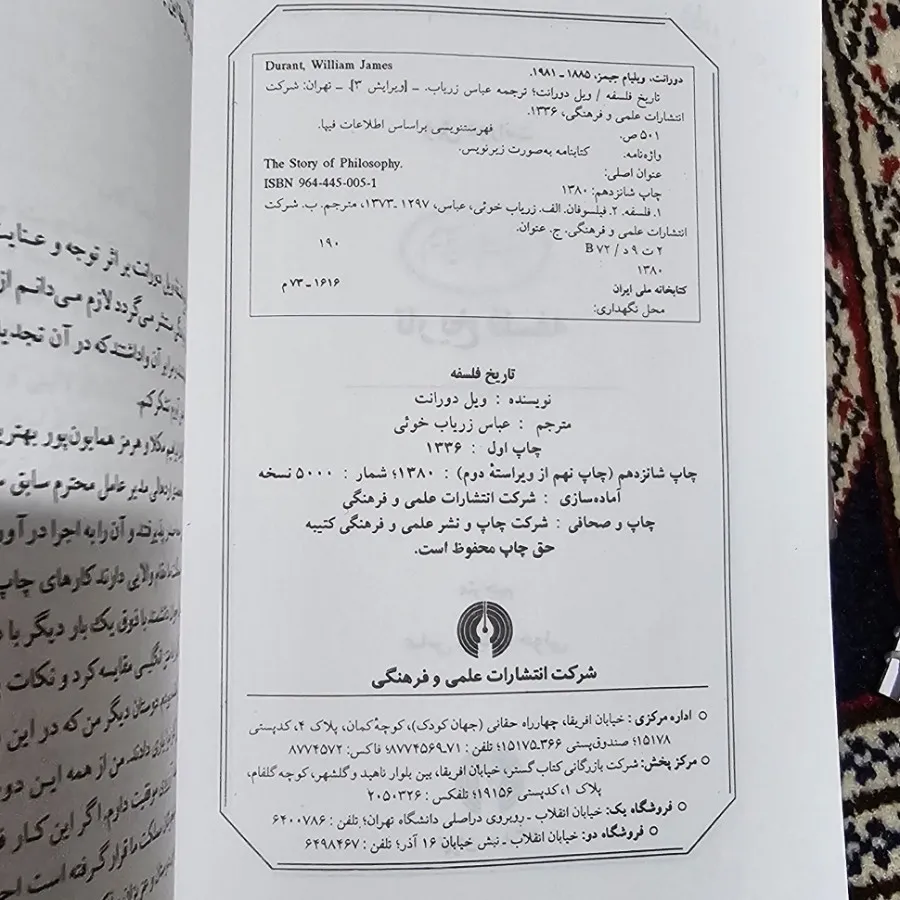 Durant, William James
دورانت، ویلیام جیمز، ۱۸۸۵ ـ ۱۹۸۱.
تاریخ فلسفه / ویل دورانت؛ ترجمه عباس زریاب. ـ [ویرایش ۳]. ـ تهران: شرکت
انتشارات علمی و فرهنگی، ۱۳۳۶.
۵۰۱ ص.
فهرستنویسی براساس اطلاعات فیپا.
واژه‌نامه.
کتابنامه به‌صورت زیرنویس.
عنوان اصلی:
The Story of Philosophy.
ISBN 964-445-005-1
چاپ شانزدهم: ۱۳۸۰
۱. فلسفه. ۲. فیلسوفان. الف. زریاب خوئی، عباس، ۱۲۹۷ ـ ۱۳۷۳، مترجم. ب. شرکت
انتشارات علمی و فرهنگی. ج. عنوان.
۲ ت ۹ د / B ۷۲
۱۹۰
۱۳۸۰
کتابخانه ملی ایران
۱۶۱۶ ـ ۷۳ م
محل نگهداری:
تاریخ فلسفه
نویسنده : ویل دورانت
مترجم : عباس زریاب خوئی
چاپ اول : ۱۳۳۶
چاپ شانزدهم (چاپ نهم از ویراستهٔ دوم) : ۱۳۸۰؛ شمار : ۵۰۰۰ نسخه
آماده‌سازی : شرکت انتشارات علمی و فرهنگی
چاپ و صحافی : شرکت چاپ و نشر علمی و فرهنگی کتیبه
حق چاپ محفوظ است.
شرکت انتشارات علمی و فرهنگی
○ اداره مرکزی : خیابان افریقا، چهارراه حقانی (جهان کودک)، کوچهٔ کمان، پلاک ۴، کدپستی
۱۵۱۷۸؛ صندوق‌پستی ۳۶۶ـ۱۵۱۷۵؛ تلفن : ۷۱ـ۸۷۷۴۵۶۹؛ فاکس: ۸۷۷۴۵۷۲
○ مرکز پخش: شرکت بازرگانی کتاب گستر، خیابان افریقا، بین بلوار ناهید و گلشهر، کوچه گلفام،
پلاک ۱، کدپستی ۱۹۱۵۶؛ تلفکس : ۲۰۵۰۳۲۶
○ فروشگاه یک: خیابان انقلاب ـ روبروی دراصلی دانشگاه تهران؛ تلفن : ۶۴۰۰۷۸۶
○ فروشگاه دو: خیابان انقلاب ـ نبش خیابان ۱۶ آذر؛ تلفن : ۶۴۹۸۴۶۷
ویل دورانت بر اثر توجه و
می‌گردد لازم می‌دانم از
آن واداشتند که در آن
هرمز همایون‌پور
مدیر عامل محترم سابق
و آن را به اجرا در
والایی دارند کارهای چاپ
یک بار دیگر با
مقایسه کرد و نکات
دوستان دیگر من که در این
من از همه این
موفقیت دارم. اگر این کار
ما قرار گرفته است